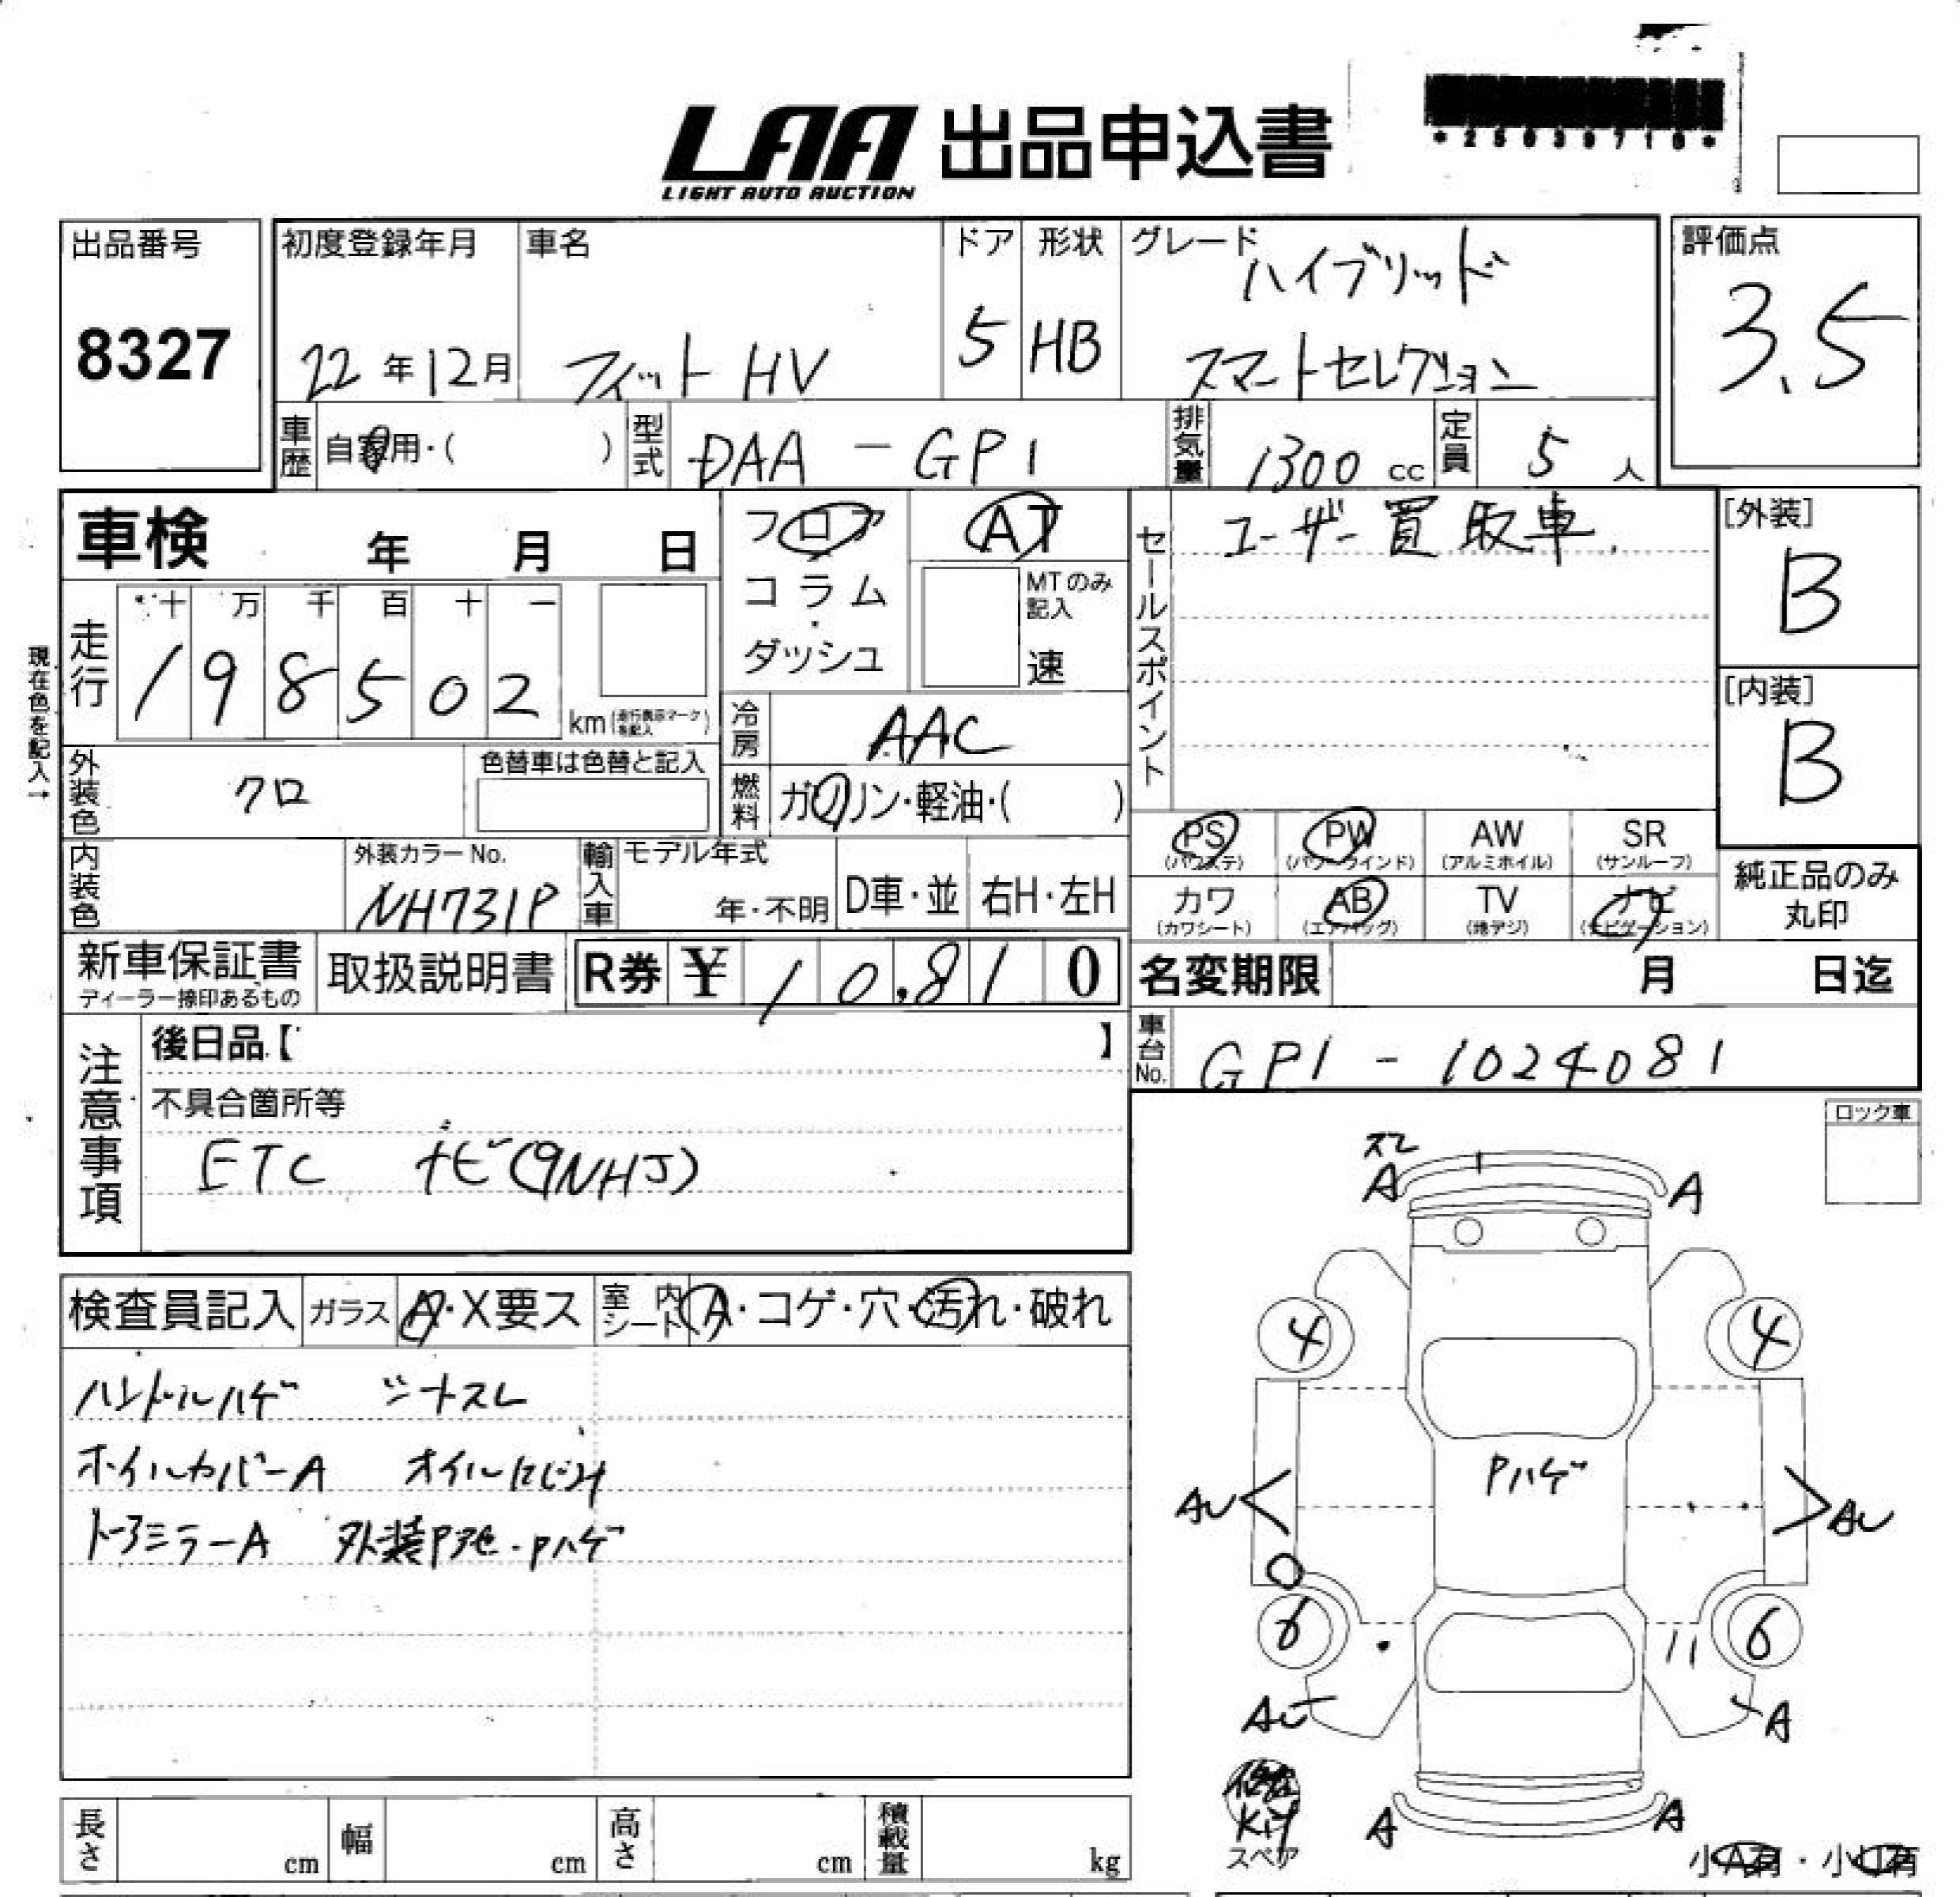 LAA 出品申込書
LIGHT AUTO AUCTION
*25039710*
出品番号
8327
初度登録年月
22年12月
車名
フィット HV
ドア
5
形状
HB
グレード
ハイブリッド
スマートセレクション
評価点
3.5
車歴
自家用・( )
型式
DAA - GP1
排気量
1300 cc
定員
5 人
車検 年 月 日
フロア
コラム・
ダッシュ
AT
MTのみ記入
速
セールスポイント
ユーザー買取車.
[外装]
B
[内装]
B
現在色を記入→
走行
十 万 千 百 十 一
1 9 8 5 0 2
km (走行表示マークを記入)
冷房
AAC
外装色
クロ
色替車は色替と記入
燃料
ガソリン・軽油・( )
内装色
外装カラーNo.
NH731P
輸入車
モデル年式
年・不明
D車・並
右H・左H
PS
(パワステ)
PW
(パワーウインド)
AW
(アルミホイル)
SR
(サンルーフ)
カワ
(カワシート)
AB
(エアバッグ)
TV
(地デジ)
ナビ
(ナビゲーション)
純正品のみ
丸印
新車保証書
ディーラー捺印あるもの
取扱説明書
R券 ¥ 10,810
名変期限 月 日迄
注意事項
後日品【 】
不具合箇所等
ETC ナビ(9NHJ)
車台No.
GP1 - 1024081
ロック車
検査員記入
ガラス A・X要ス
室内シート A・コゲ・穴・汚れ・破れ
ハンドルハゲ シートスレ
ホイルカバーA オイルにじみ
ドアミラーA 外装P・Pハゲ
スレ
A A
4 4
Pハゲ
AU AU
6 6
AU A
Kit
スペア
A A
小A有・小U有
長さ cm
幅 cm
高さ cm
積載量 kg